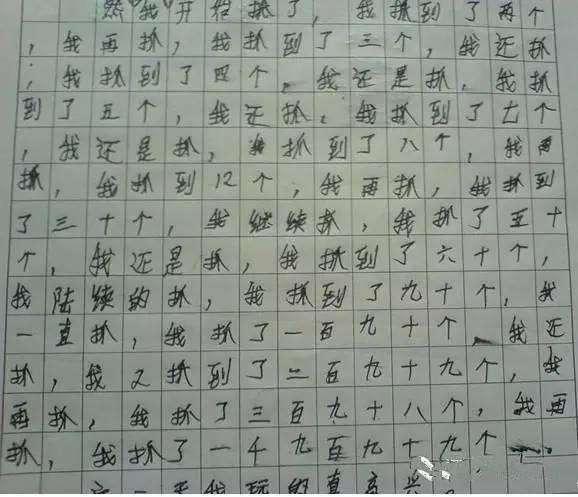 然我开始抓了，我抓到了两个
，我再抓，我抓到了三个，我还抓
，我抓到了四个，我还是抓，我抓
到了五个，我还抓，我抓到了七个
，我还是抓，我抓到了八个，我再
抓，我抓到12个，我再抓，我抓到
了三十个，我继续抓，我抓了五十
个，我还是抓，我抓到了六十个，
我陆续的抓，我抓到了九十个，我
一直抓，我抓了一百九十个，我还
抓，我又抓到了二百九十九个，我
再抓，我抓了三百九十八个，我再
抓，我抓了一千九百九十九个
这一天我玩的真高兴